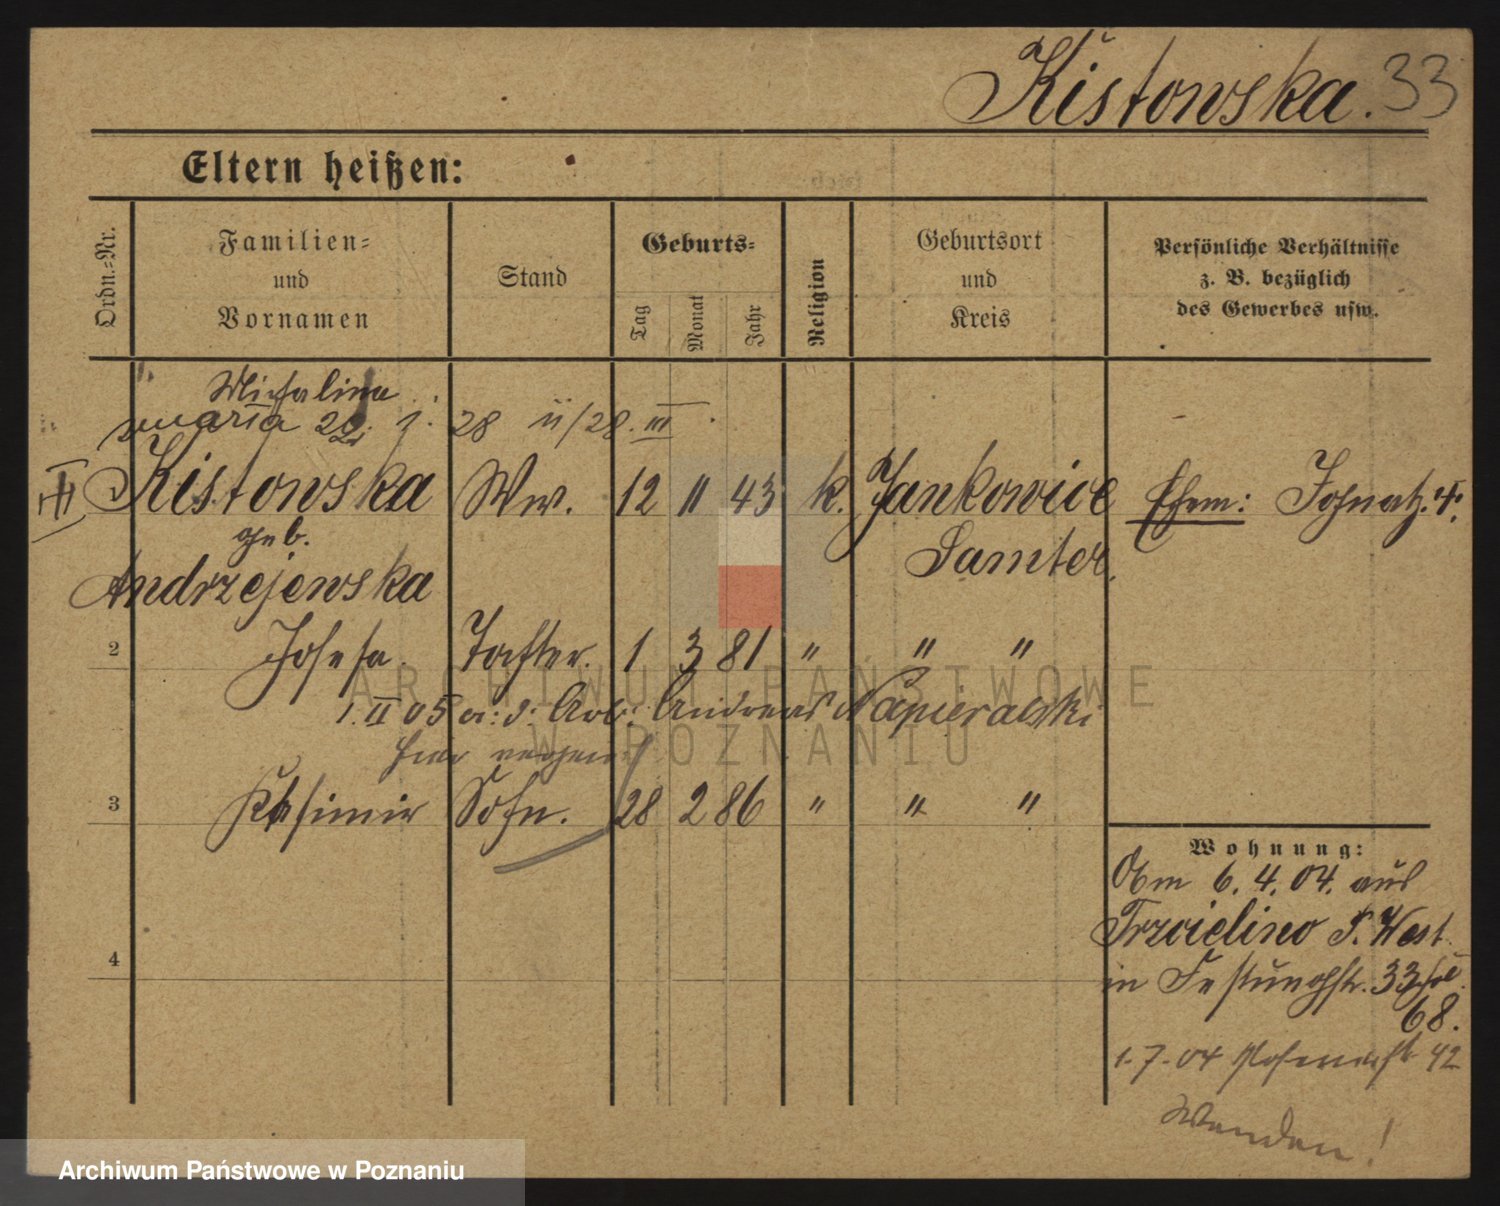 Kistowska. 33
Eltern heißen:
Ordn.=Nr.
Familien=
und
Vornamen
Stand
Geburts=
Tag
Monat
Jahr
Religion
Geburtsort
und
Kreis
Persönliche Verhältnisse
z. B. bezüglich
des Gewerbes usw.
Michalina
Maria 28 II/28. III
Kistowska Ww. 12 11 43 k. Jankowice Ehem:
geb. Samter.
Andrzejewska
2 Josefa. Tochter. 1 3 81 " " "
1. II 05 Arb. Andreas Napieralski
hier
3 Kasimir Sohn. 28 2 86 " " "
Wohnung:
Obm 6. 4. 04. aus
Trzcielino P. West
in Festungsstr. 33
68.
4
1.7.04 42
Wenden!
ARCHIWUM PAŃSTWOWE
W POZNANIU
Archiwum Państwowe w Poznaniu